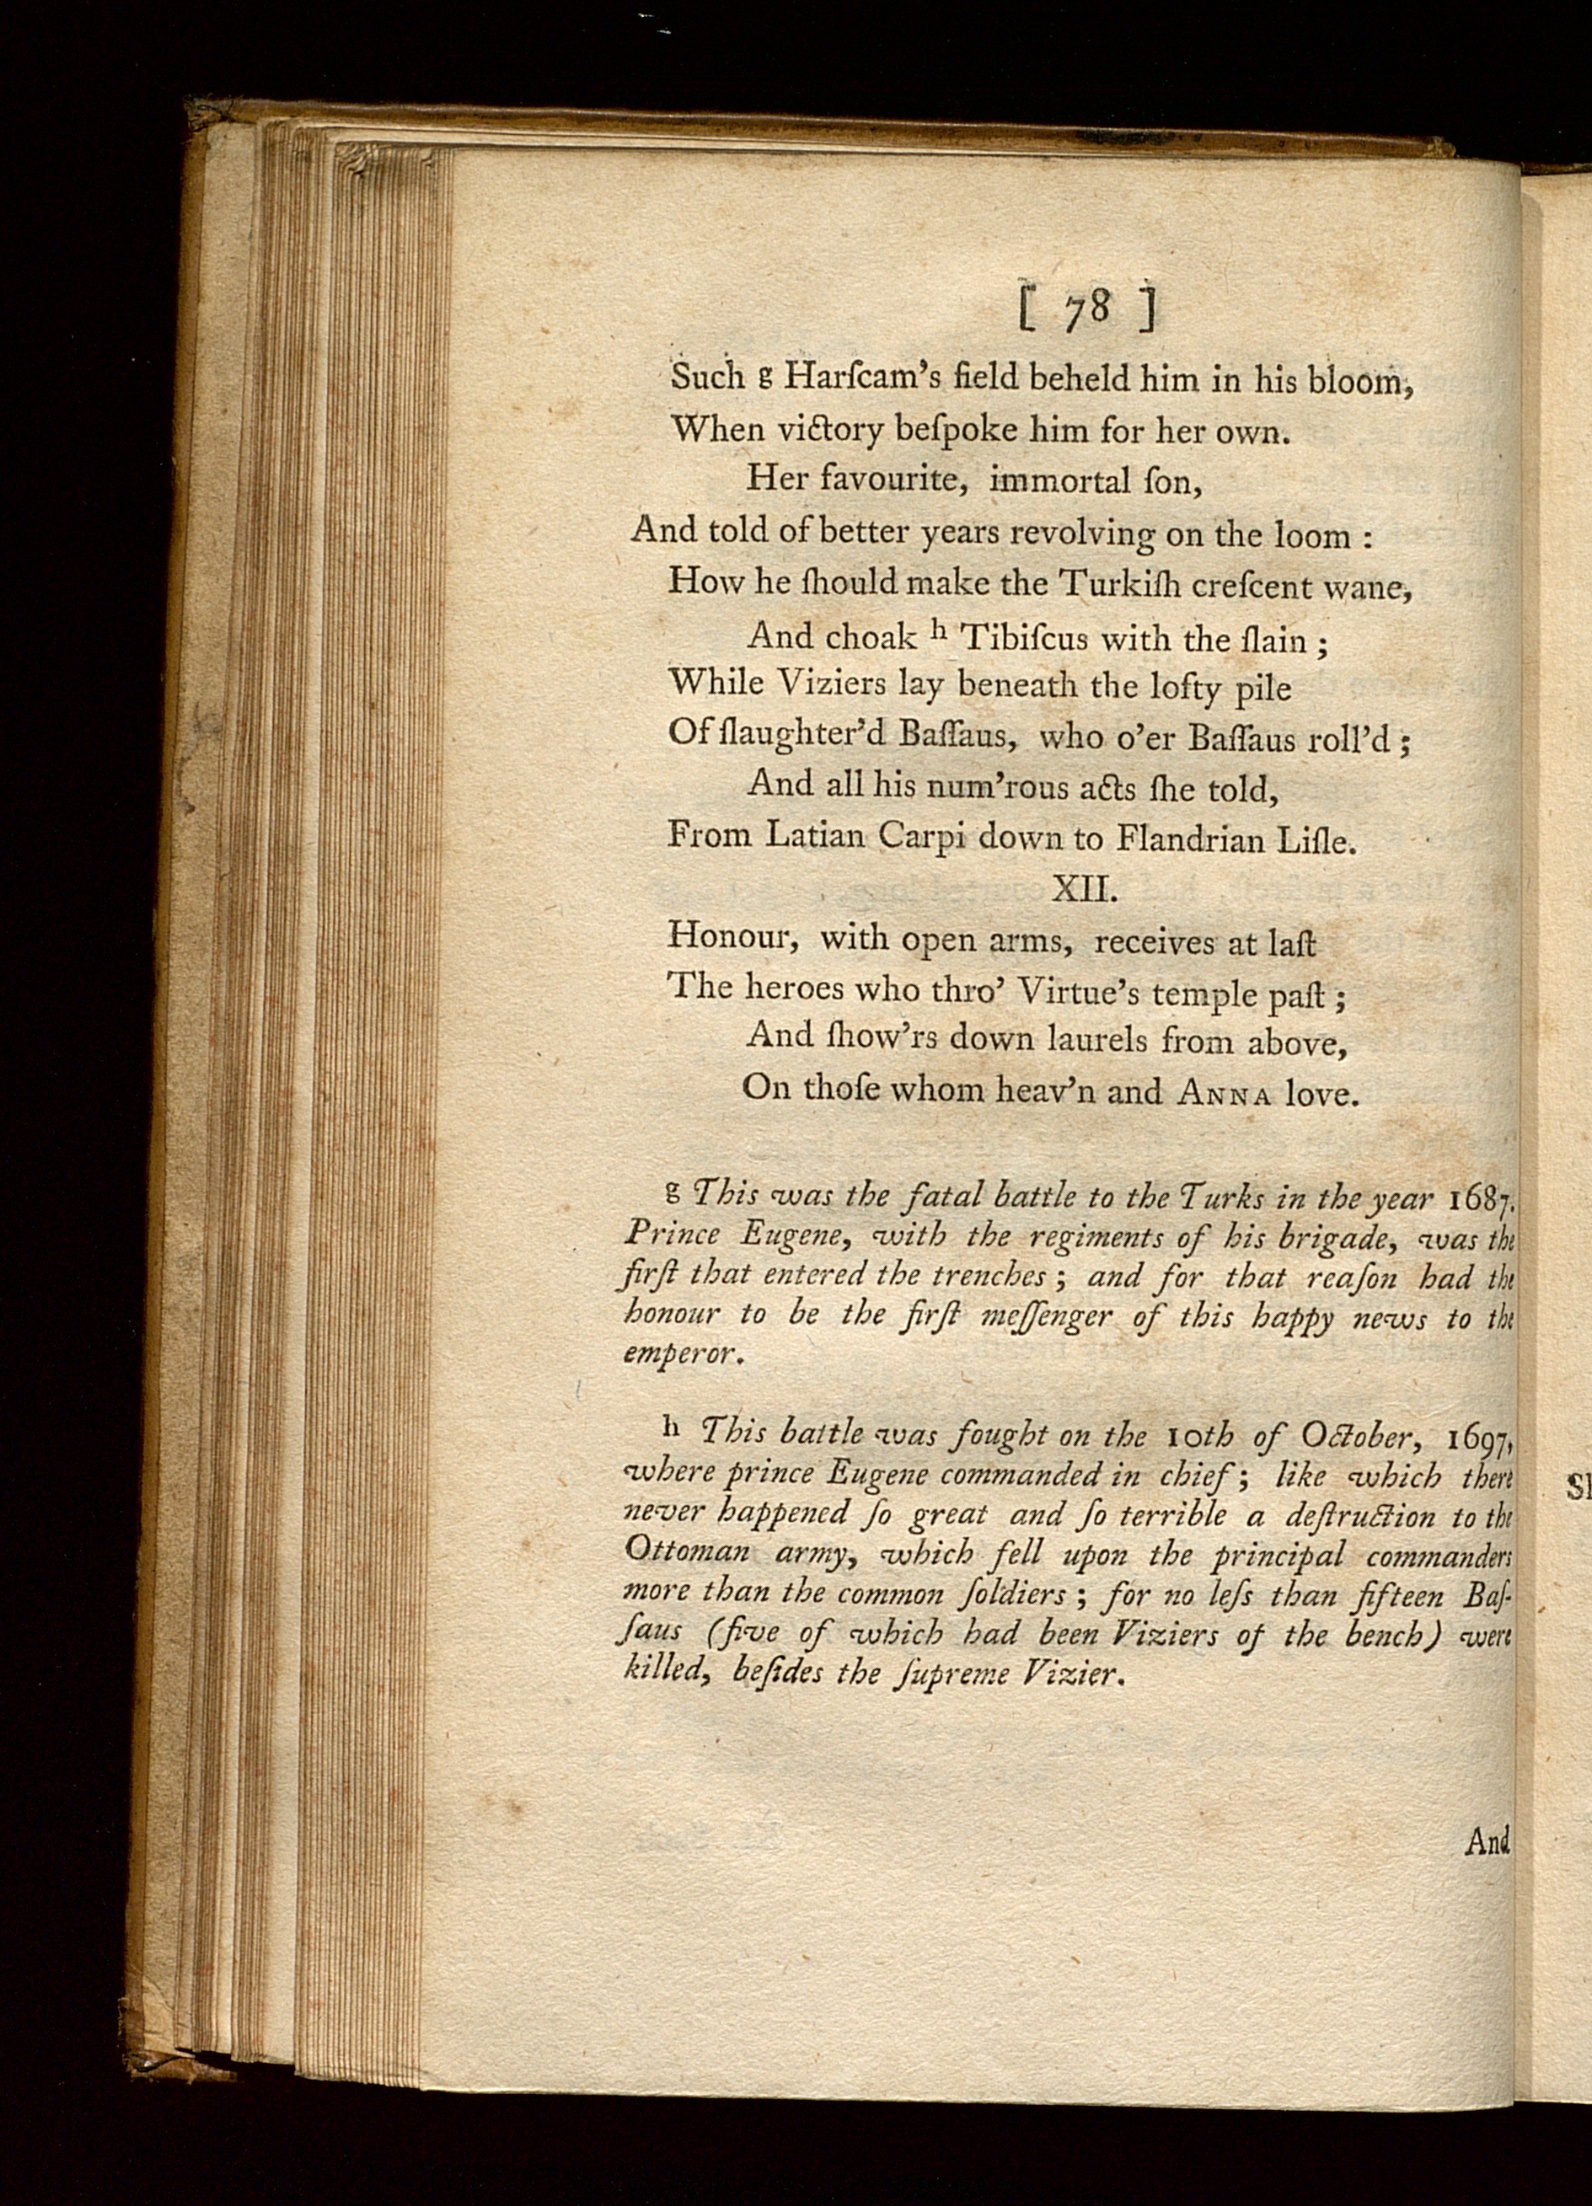 [ 78 ]
Such g Harſcam's field beheld him in his bloom,
When victory beſpoke him for her own.
Her favourite, immortal ſon,
And told of better years revolving on the loom :
How he ſhould make the Turkiſh creſcent wane,
And choak h Tibiſcus with the ſlain ;
While Viziers lay beneath the lofty pile
Of ſlaughter'd Baſſaus, who o'er Baſſaus roll'd ;
And all his num'rous acts ſhe told,
From Latian Carpi down to Flandrian Liſle.
XII.
Honour, with open arms, receives at laſt
The heroes who thro' Virtue's temple paſt ;
And ſhow'rs down laurels from above,
On thoſe whom heav'n and ANNA love.
g This was the fatal battle to the Turks in the year 1687.
Prince Eugene, with the regiments of his brigade, was the
firſt that entered the trenches ; and for that reaſon had the
honour to be the firſt meſſenger of this happy news to the
emperor.
h This battle was fought on the 10th of October, 1697,
where prince Eugene commanded in chief ; like which there
never happened ſo great and ſo terrible a deſtruction to the
Ottoman army, which fell upon the principal commanders
more than the common ſoldiers ; for no leſs than fifteen Baſ-
ſaus (five of which had been Viziers of the bench) were
killed, beſides the ſupreme Vizier.
And